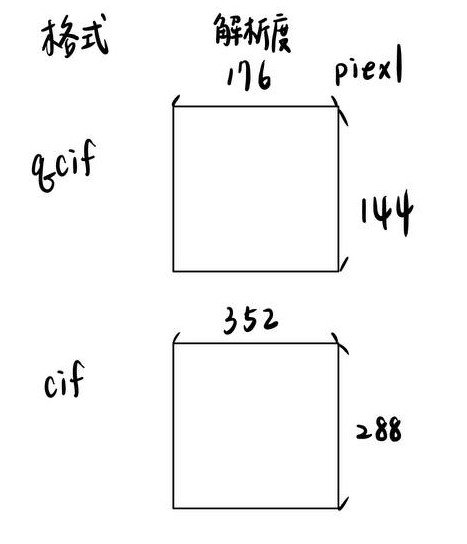 格式 解析度
176 piexl
qcif
144
352
cif
288